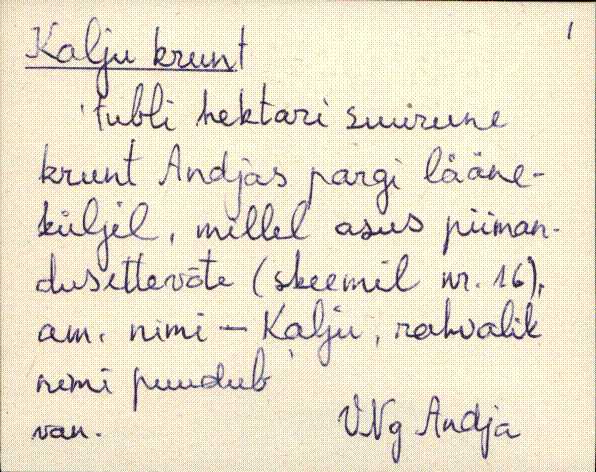 1
Kalju krunt
Tubli hektari suurune
krunt Andjas pargi lääne-
küljel, millel asus piiman-
dusettevõte (skeemil nr. 16),
am. nimi – Kalju, rahvalik
nimi puudub
van. VNg Andja